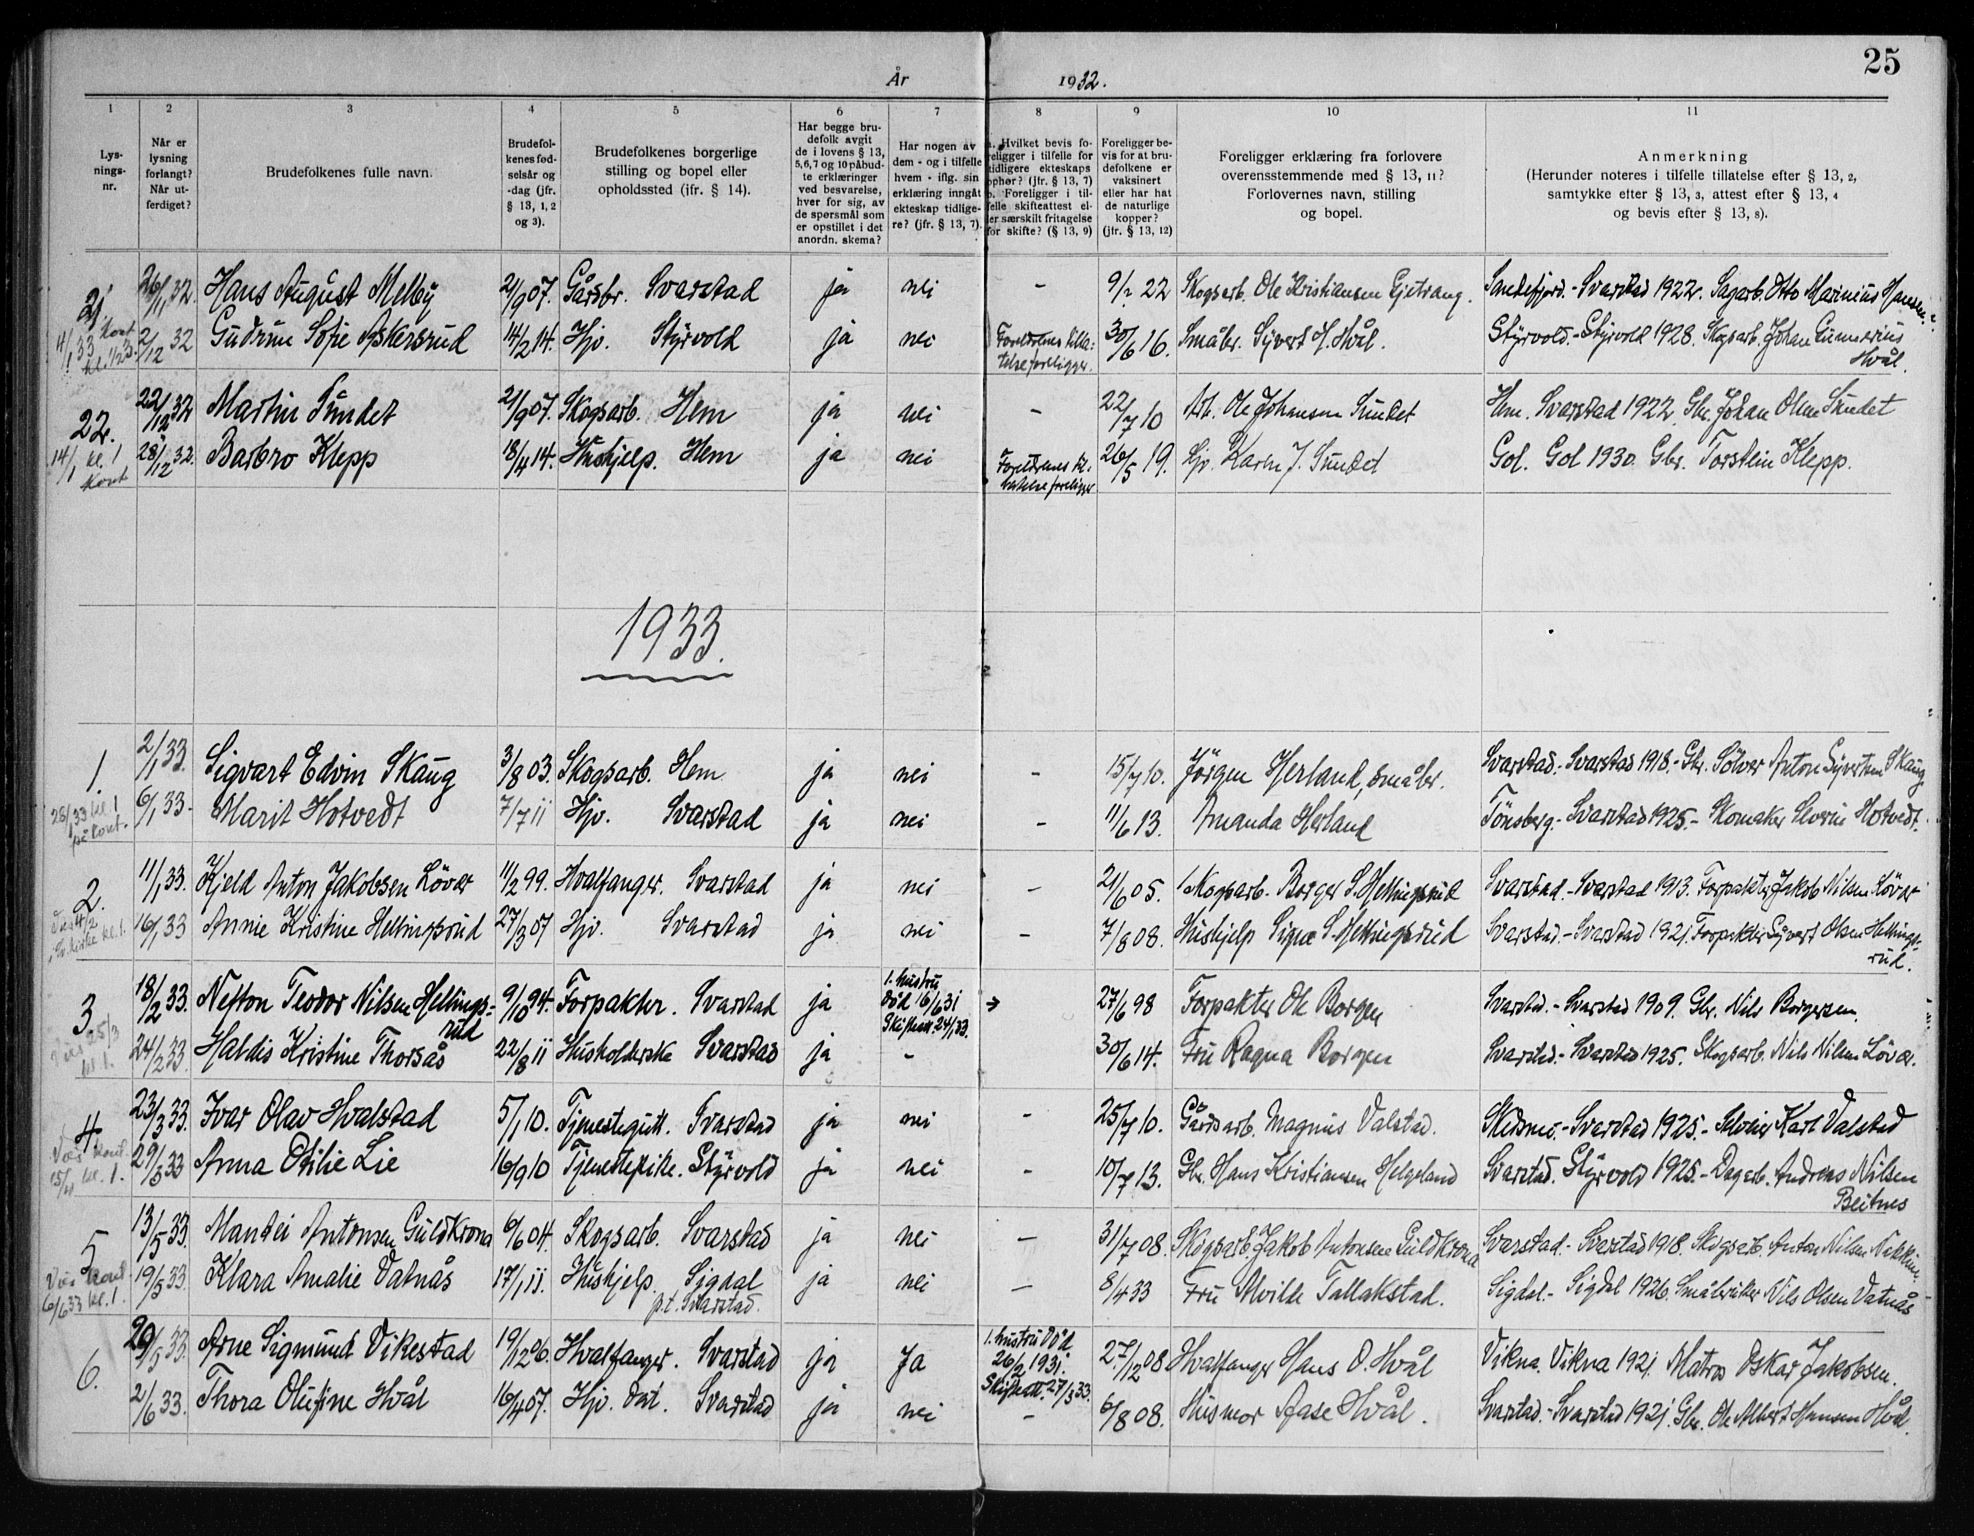 25
År 1932.
1 2 3 4 5 6 7 8 9 10 11
Lys-
nings-
nr.
Når er
lysning
forlangt?
Når ut-
ferdiget?
Brudefolkenes fulle navn.
Brudefol-
kenes fød-
selsår og
-dag (jfr.
§ 13, 1, 2
og 3).
Brudefolkenes borgerlige
stilling og bopel eller
opholdssted (jfr. § 14).
Har begge bru-
defolk avgit
de i lovens § 13,
5,6,7 og 10 påbud-
te erklæringer
ved besvarelse,
hver for sig, av
de spørsmål som
er opstillet i det
anordn. skema?
Har nogen av
dem - og i tilfelle
hvem - iflg. sin
erklæring inngått
ekteskap tidlige-
re? (jfr. § 13, 7).
a. Hvilket bevis fo-
religger i tilfelle for
tidligere ekteskaps
ophør? (jfr. § 13, 7)
b. Foreligger i til-
felle skifteattest el-
ler særskilt fritagelse
for skifte? (§ 13, 9)
Foreligger be-
vis for at bru-
defolkene er
vaksinert
eller har hat
de naturlige
kopper?
(jfr. § 13, 12)
Foreligger erklæring fra forlovere
overensstemmende med § 13, 11?
Forlovernes navn, stilling
og bopel.
Anmerkning
(Herunder noteres i tilfelle tillatelse efter § 13, 2,
samtykke efter § 13, 3, attest efter § 13, 4
og bevis efter § 13, 8).
21 26/11 32. Hans August Melby 2/9 07. Gårdbr. Svarstad ja nei - 9/2 22 Skogsarb. Ole Kristiansen Gjetrang. Sandefjord. - Svarstad 1922. Sagarb. Otto Marinius Hansen.
14/1 33 kont. kl. 1/23. 2/12 32 Gudrun Sofie Askersrud 14/2 14. Hjv. Styrvold ja nei Foreldrenes tilla-
telse foreligger. 30/6 16. Småbr. Syvert H. Hvål. Styrvold. - Styrvold 1928. Skogsarb. Johan Gunnerius
Hvål.
22. 22/12 32 Martin Sundet 2/9 07. Skogsarb. Hem ja nei - 22/7 10 Arb. Ole Johansen Sundet Hem. Svarstad 1922. Gbr. Johan Olsen Sundet
14/1 kl. 1 kont. 28/12 32. Barbro Klepp 18/4 14. Hushjelp. Hem ja nei Foreldrenes til-
latelse foreligger 26/5 19. Hjv. Karen J. Sundet Gol. Gol 1930. Gbr. Torstein Klepp.
1933.
1. 2/1 33. Sigvart Edvin Skaug 3/8 03. Skogsarb. Hem ja nei - 15/7 10. Jörgen Herland, småbr. Svarstad. - Svarstad 1918. - Gbr. Sölver Anton Syvertsen Skaug
26/1 33 kl. 1
på kont. 6/1 33. Marit Hotvedt 7/7 11 Hjv. Svarstad ja nei - 11/6 13. Amanda Herland Tönsberg. - Svarstad 1925. - Skomaker Severin Hotvedt.
2. 11/1 33. Kjeld Anton Jakobsen Löver 11/2 99. Hvalfanger. Svarstad ja nei - 21/6 05. Skogsarb. Borger S. Hellingsrud Svarstad. - Svarstad 1913. Forpakter Jakob Nilsen Löver
Vies 4/2
kirke kl. 1. 16/1 33 Annie Kristine Hellingsrud 27/3 07 Hjv. Svarstad ja nei - 7/8 08. Hushjelp Signe S. Hellingsrud Svarstad. - Svarstad 1921. Forpakter Syvert Olsen Hellings-
rud.
3 18/2 33. Nefton Teodor Nilsen Hellings-
rud 9/10 94. Forpakter. Svarstad ja 1. hustru
död 16/6 31
Skifteatt. 24/1 33. → 27/6 98 Forpakter Ole Borgen Svarstad. - Svarstad 1909. Gbr. Nils Borgersen.
Vies 25/3
kl 1. 24/2 33 Haldis Kristine Thorsås 22/8 11 Husholderske Svarstad ja - 30/6 14. Fru Ragna Borgen Svarstad. - Svarstad 1925. Skogsarb. Nils Nilsen Löver.
4. 23/3 33. Ivar Olav Hvalstad 5/1 10. Tjenestegutt. Svarstad ja nei - 25/7 10. Gårdsarb. Magnus Valstad. Skedsmo. - Svarstad 1925. - Karl Valstad
Vies kont.
15/4 kl. 1. 29/3 33 Anna Otilie Lie 16/9 10 Tjenestepike. Styrvold ja nei - 10/7 13. Gbr. Hans Kristiansen Helgeland Svarstad. Styrvold 1925. - Dagarb. Andreas Nilsen
Beitnes
5 13/5 33. Mandei Antonsen Guldkrona 6/6 04. Skogsarb. Svarstad ja nei - 31/7 08. Skogsarb. Jakob Antonsen Guldkrona Svarstad. - Svarstad 1918. Skogsarb. Anton Nilsen
Vies kont
6/6 33 kl. 1. 19/5 33. Klara Amalie Vatnås 17/1 11. Hushjelp. Sigdal
p.t. Svarstad. ja nei - 8/4 33 Fru Mville Tallakstad. Sigdal. - Sigdal 1926. Småbruker Nils Olsen Vatnås
6. 20/5 33. Arne Sigmund Vikestad 19/12 06. Hvalfanger. Svarstad ja Ja 1. hustru död
26/2 1931.
Skifteatt. 27/3 33. 27/12 08 Hvalfanger Hans O. Hvål Vikna. Vikna 1921. Matros Oskar Jakobsen.
2/6 33. Thora Olufine Hvål 16/4 07. Hjv. dat. Svarstad ja nei - 6/8 08. Husmor Aase Hvål. Svarstad. - Svarstad 1921. Gbr. Ole Albert Hansen Hvål.